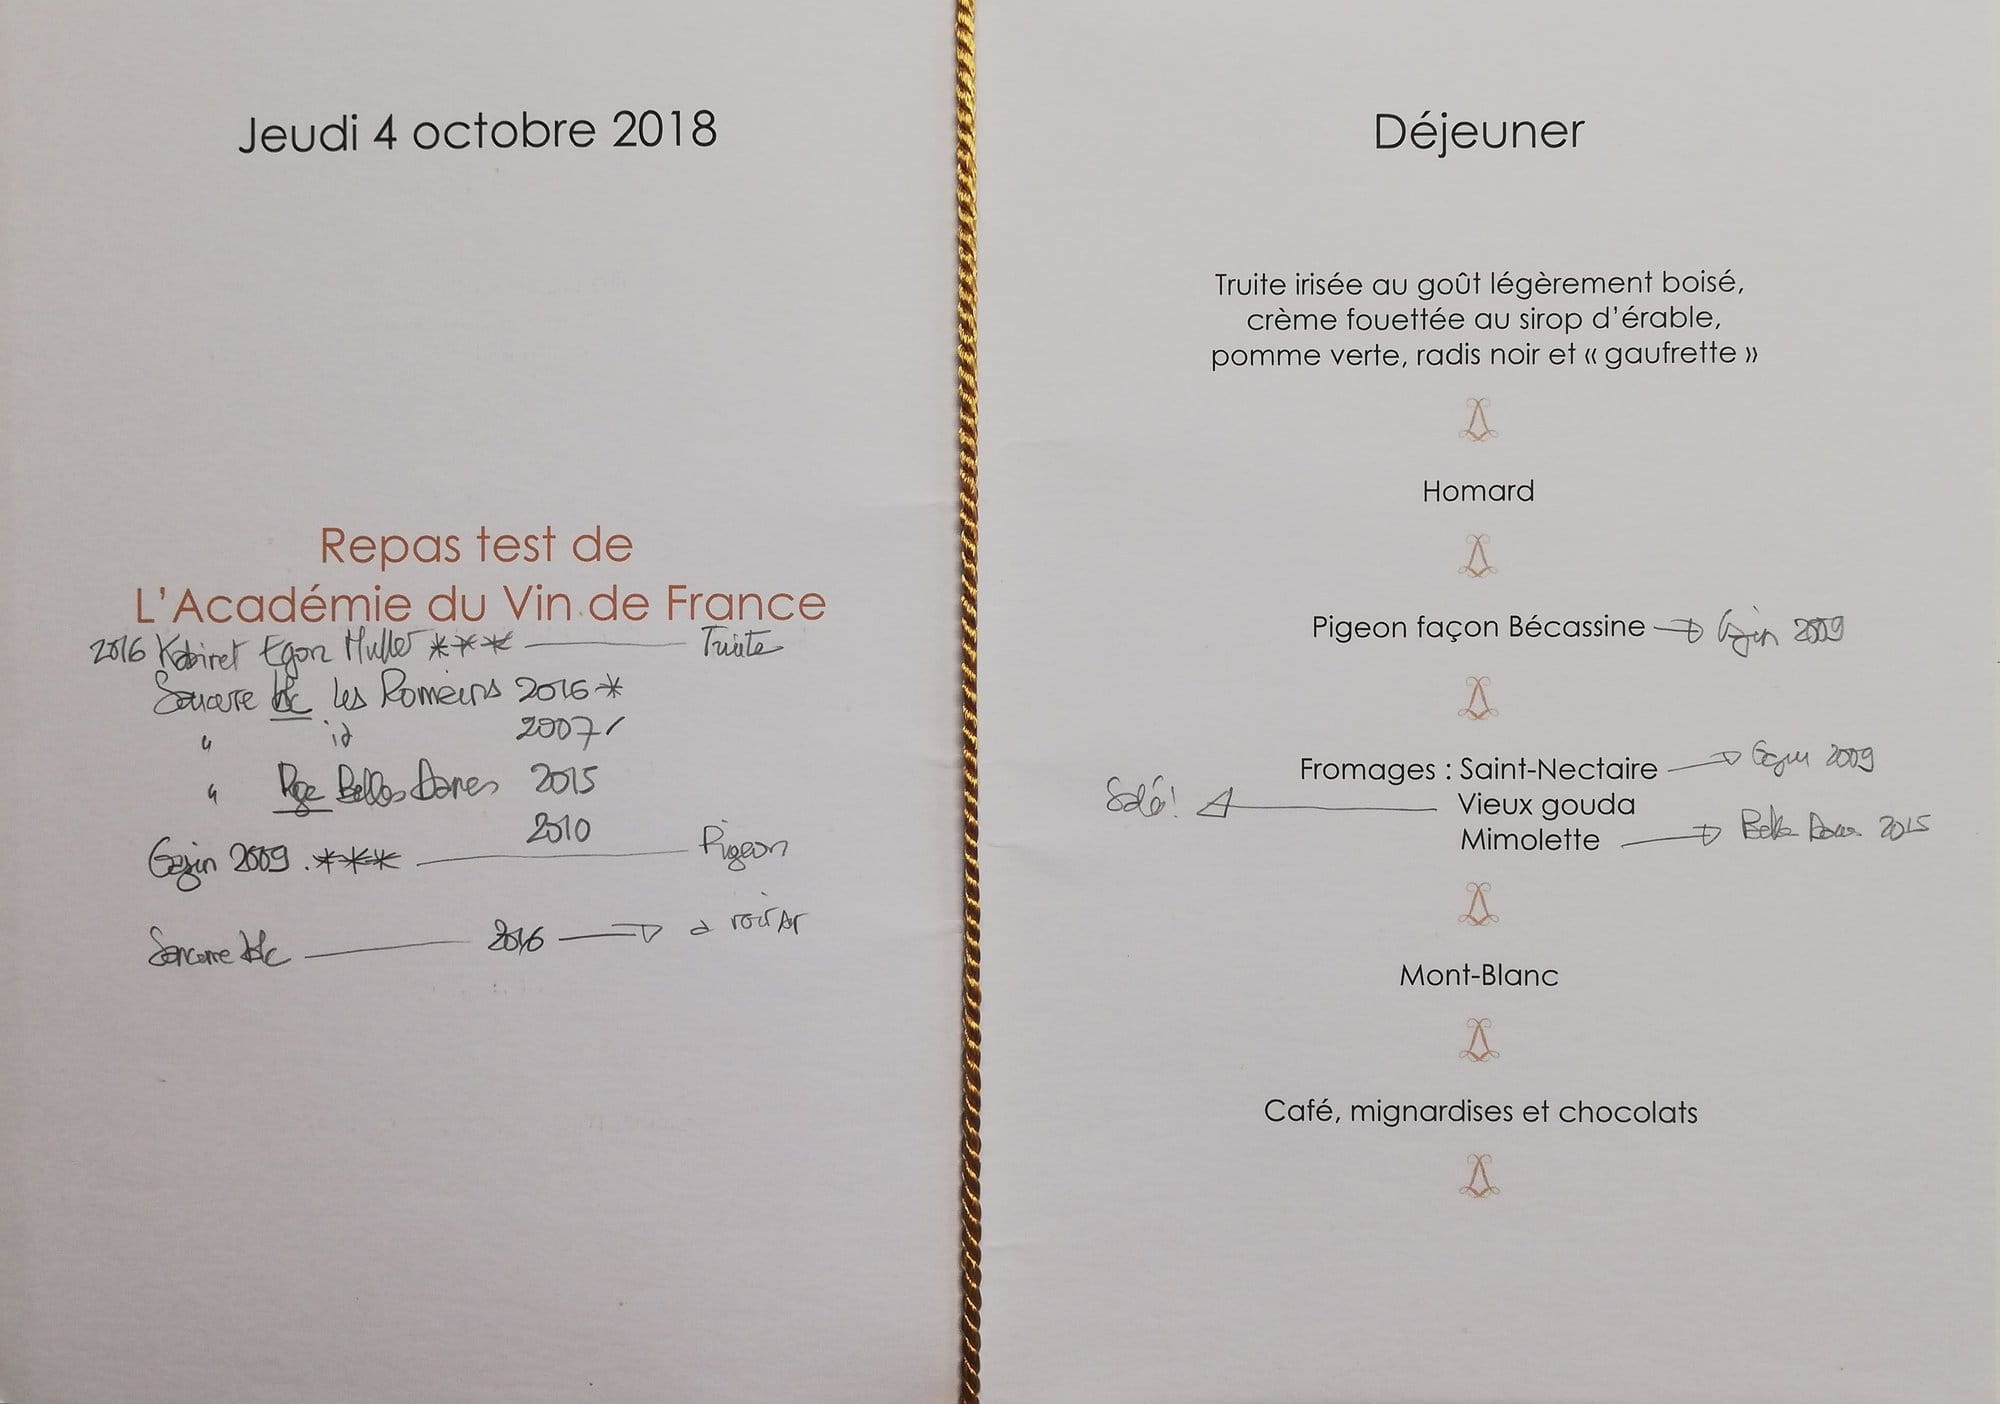 Jeudi 4 octobre 2018
Repas test de
L'Académie du Vin de France
2016 Kabinet Egon Muller *** Truite
Sancerre blc les Romains 2016 *
" id 2007
" Rge Belles Dames 2015
2010
2009. *** Pigeon
Sancerre blc 2016
Déjeuner
Truite irisée au goût légèrement boisé,
crème fouettée au sirop d'érable,
pomme verte, radis noir et « gaufrette »
Homard
Pigeon façon Bécassine 2009
Fromages : Saint-Nectaire 2009
Salé! Vieux gouda
Mimolette Belles Dames 2015
Mont-Blanc
Café, mignardises et chocolats